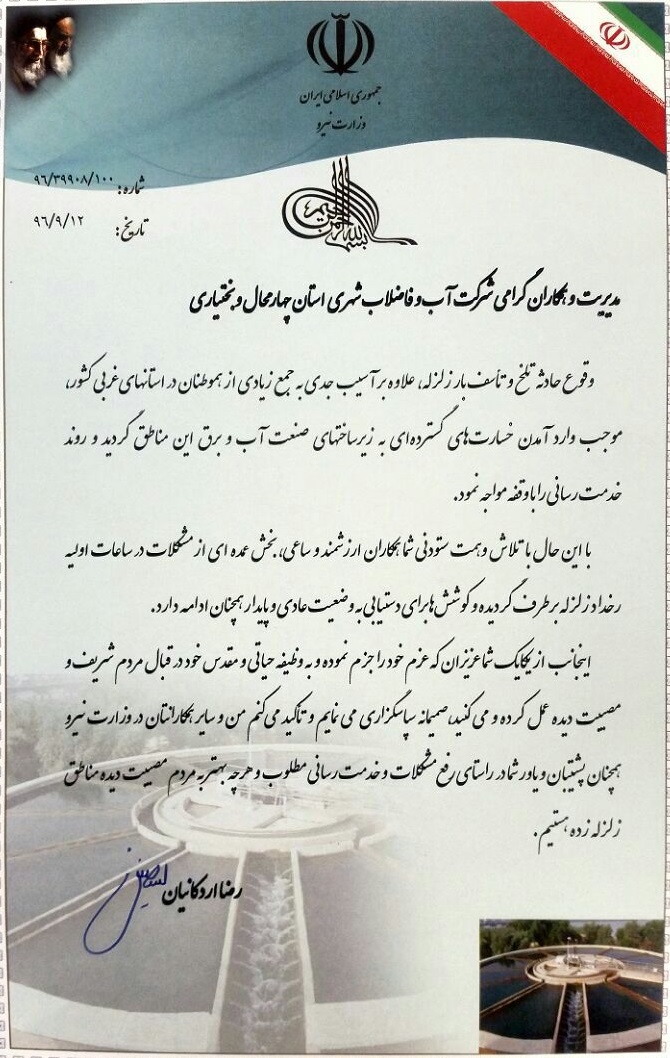 جمهوری اسلامی ایران
وزارت نیرو
شماره: ۹۶/۳۹۹۰۸/۱۰۰
تاریخ: ۹۶/۹/۱۲
بسم الله الرحمن الرحیم
مدیریت و همکاران گرامی شرکت آب و فاضلاب شهری استان چهارمحال و بختیاری
وقوع حادثه تلخ و تأسف بار زلزله، علاوه بر آسیب جدی به جمع زیادی از هموطنان در استانهای غربی کشور،
موجب وارد آمدن خسارت‌های گسترده‌ای به زیرساختهای صنعت آب و برق این مناطق گردید و روند
خدمت رسانی را با وقفه مواجه نمود.
با این حال با تلاش و همت ستودنی شما همکاران ارزشمند و ساعی، بخش عمده ای از مشکلات در ساعات اولیه
رخداد زلزله برطرف گردیده و کوشش ها برای دستیابی به وضعیت عادی و پایدار همچنان ادامه دارد.
اینجانب از یکایک شما عزیزان که عزم خود را جزم نموده و به وظیفه حیاتی و مقدس خود در قبال مردم شریف و
مصیبت دیده عمل کرده و می کنید، صمیمانه سپاسگزاری می نمایم و تأکید می کنم من و سایر همکارانتان در وزارت نیرو
همچنان پشتیبان و یاور شما در راستای رفع مشکلات و خدمت رسانی مطلوب و هرچه بهتر به مردم مصیبت دیده مناطق
زلزله زده هستیم.
رضا اردکانیان